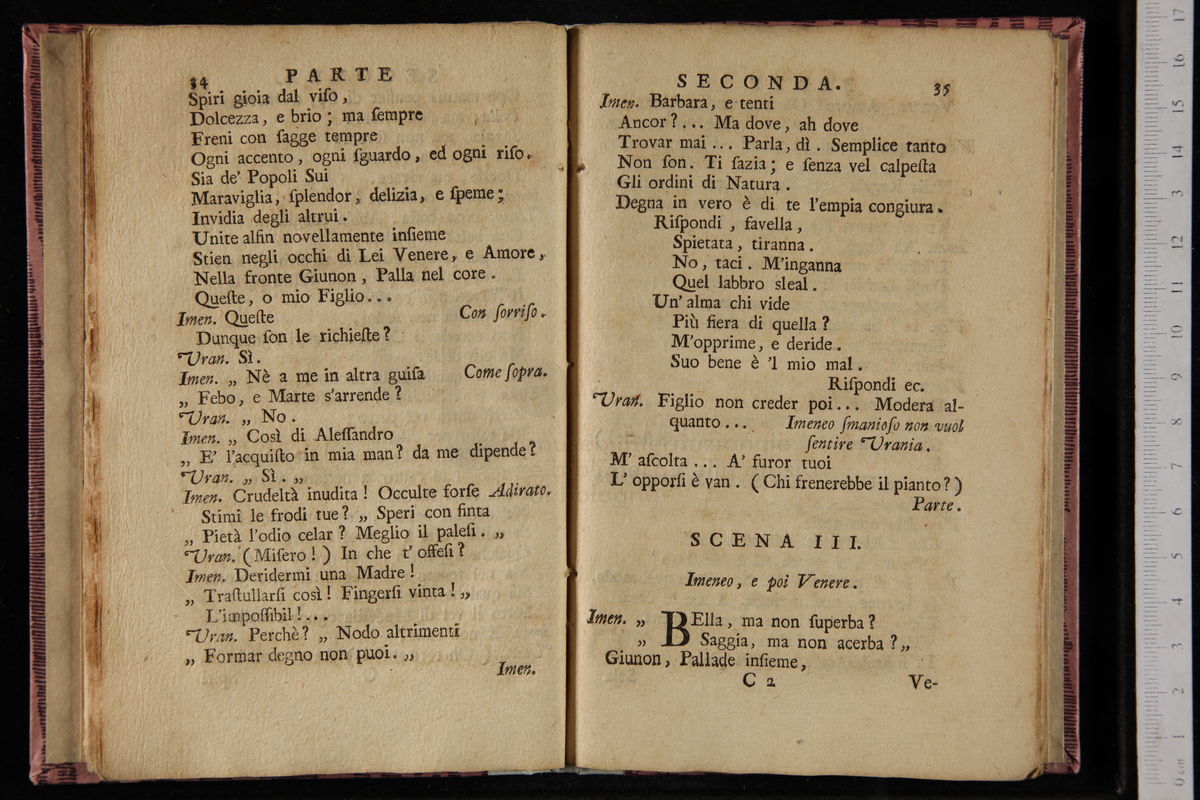 34 PARTE
Spiri gioia dal viſo,
Dolcezza, e brio; ma ſempre
Freni con ſagge tempre
Ogni accento, ogni ſguardo, ed ogni riſo.
Sia de' Popoli Sui
Maraviglia, ſplendor, delizia, e ſpeme;
Invidia degli altrui.
Unite alfin novellamente inſieme
Stien negli occhi di Lei Venere, e Amore,
Nella fronte Giunon, Palla nel core.
Queſte, o mio Figlio...
Imen. Queſte Con ſorriſo.
Dunque ſon le richieſte?
Uran. Sì.
Imen. „ Nè a me in altra guiſa Come ſopra.
„ Febo, e Marte s'arrende?
Uran. „ No.
Imen. „ Così di Aleſſandro
„ E' l'acquiſto in mia man? da me dipende?
Uran. „ Sì. „
Imen. Crudeltà inudita! Occulte forſe Adirato.
Stimi le frodi tue? „ Speri con finta
„ Pietà l'odio celar? Meglio il paleſi. „
Uran. (Miſero!) In che t' offeſi?
Imen. Deridermi una Madre!
„ Traſtullarſi così! Fingerſi vinta! „
L'impoſſibil!...
Uran. Perchè? „ Nodo altrimenti
„ Formar degno non puoi. „
Imen.
SECONDA. 35
Imen. Barbara, e tenti
Ancor?... Ma dove, ah dove
Trovar mai... Parla, dì. Semplice tanto
Non ſon. Ti ſazia; e ſenza vel calpeſta
Gli ordini di Natura.
Degna in vero è di te l'empia congiura.
Riſpondi, favella,
Spietata, tiranna.
No, taci. M'inganna
Quel labbro sleal.
Un' alma chi vide
Più fiera di quella?
M'opprime, e deride.
Suo bene è 'l mio mal.
Riſpondi ec.
Uran. Figlio non creder poi... Modera al-
quanto... Imeneo ſmanioſo non vuol
ſentire Urania.
M' aſcolta... A' furor tuoi
L' opporſi è van. (Chi frenerebbe il pianto?)
Parte.
SCENA III.
Imeneo, e poi Venere.
Imen. „ BElla, ma non ſuperba?
„ Saggia, ma non acerba? „
Giunon, Pallade inſieme,
C 2 Ve-